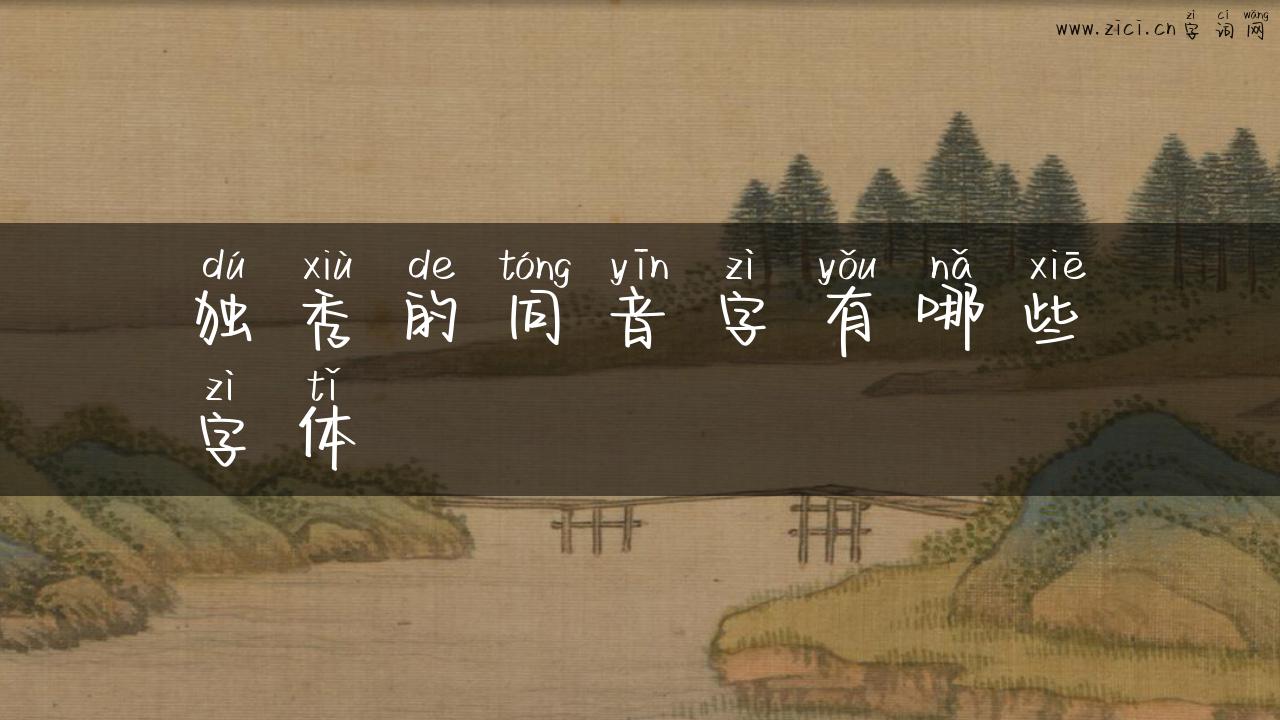 zì cí wǎng
www.zici.cn 字 词 网
dú xiù de tóng yīn zì yǒu nǎ xiē
独 秀 的 同 音 字 有 哪 些
zì tǐ
字 体